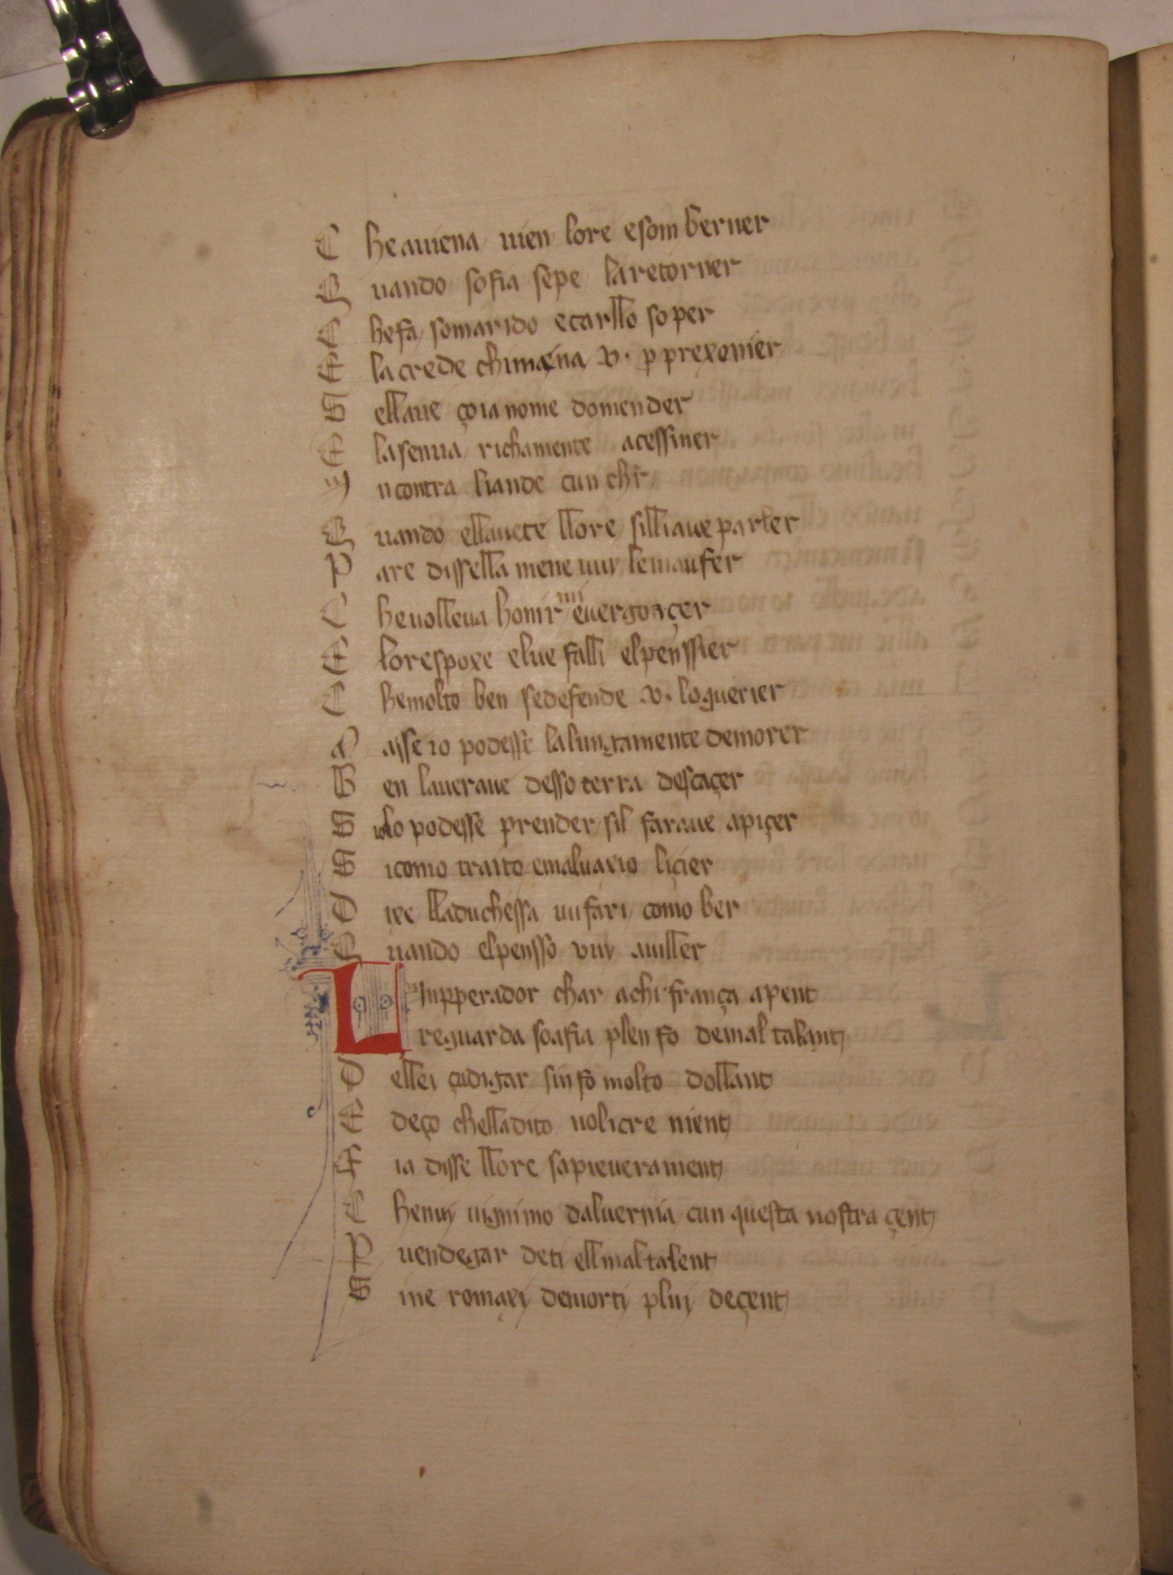 C he auiena uien lore e som berner
Q uando so fia sepe la retorner
C he fa so marido e carllo so per
E la crede chi mena .v. p prexonier
S ellaue çoia no me domender
E la senua richamente acessmer
In contra li ande cun chr
Q uando ella uete llore silli aue parler
P are diss ella mene uuy le maufer
C he volleua honir e uergonçer
E lo respoxe el ue falli el penssier
C he molto ben se defende .v. lo guerier
M a isse io podesse la lungamente demorer
B en l auerane desso terra descaçer
S lo podesse prender sil faraue apiçer
S icomo traito e maluaxio liçier
D ixe lla duchessa uu fari como ber
Q uando el pensso vuy auiller
L Inpperador char a chi frança apent
reguarda soa fia plen fo de mal talant
D ellei çudigar sin fo molto dollant
E deço chella dito uoli cre nient
F ia disse llore sapie uerament
C he nuy uignimo d aluernia cun questa nostra çent
P uendegar de ti ell mal talent
S i ne romaxi de morti pluy de çent